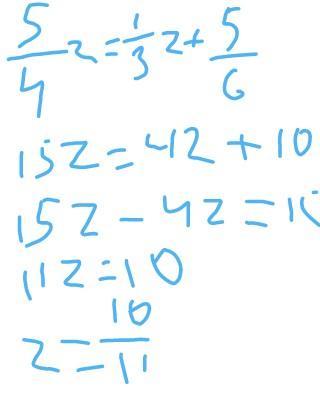 5/4 z = 1/3 z + 5/6
15z = 4z + 10
15z - 4z = 10
11z = 10
z = 10/11